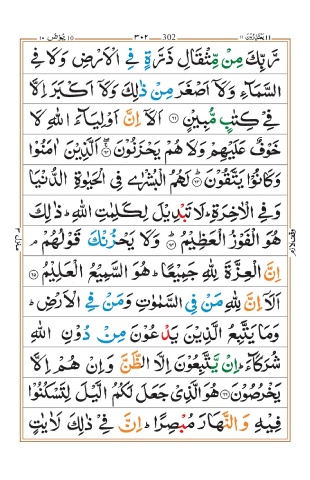 یعتذرون ۱۱ ۳۰۲ 302 یونس ۱۰
رَّبِّكَ مِنْ مِّثْقَالِ ذَرَّةٍ فِي الْاَرْضِ وَلَا فِي
السَّمَآءِ وَلَاۤ اَصْغَرَ مِنْ ذٰلِكَ وَلَاۤ اَكْبَرَ اِلَّا
فِيْ كِتٰبٍ مُّبِيْنٍ ﴿۶۱﴾ اَلَاۤ اِنَّ اَوْلِيَآءَ اللّٰهِ لَا
خَوْفٌ عَلَيْهِمْ وَلَا هُمْ يَحْزَنُوْنَ ﴿۶۲﴾ الَّذِيْنَ اٰمَنُوْا
وَكَانُوْا يَتَّقُوْنَ ﴿۶۳﴾ لَهُمُ الْبُشْرٰى فِي الْحَيٰوةِ الدُّنْيَا
وَفِي الْاٰخِرَةِ ؕ لَا تَبْدِيْلَ لِكَلِمٰتِ اللّٰهِ ؕ ذٰلِكَ
هُوَ الْفَوْزُ الْعَظِيْمُ ﴿۶۴﴾ وَلَا يَحْزُنْكَ قَوْلُهُمْ ۘ
اِنَّ الْعِزَّةَ لِلّٰهِ جَمِيْعًا ؕ هُوَ السَّمِيْعُ الْعَلِيْمُ ﴿۶۵﴾
اَلَاۤ اِنَّ لِلّٰهِ مَنْ فِي السَّمٰوٰتِ وَمَنْ فِي الْاَرْضِ ؕ
وَمَا يَتَّبِعُ الَّذِيْنَ يَدْعُوْنَ مِنْ دُوْنِ اللّٰهِ
شُرَكَآءَ ؕ اِنْ يَّتَّبِعُوْنَ اِلَّا الظَّنَّ وَاِنْ هُمْ اِلَّا
يَخْرُصُوْنَ ﴿۶۶﴾ هُوَ الَّذِيْ جَعَلَ لَكُمُ الَّيْلَ لِتَسْكُنُوْا
فِيْهِ وَالنَّهَارَ مُبْصِرًا ؕ اِنَّ فِيْ ذٰلِكَ لَاٰيٰتٍ